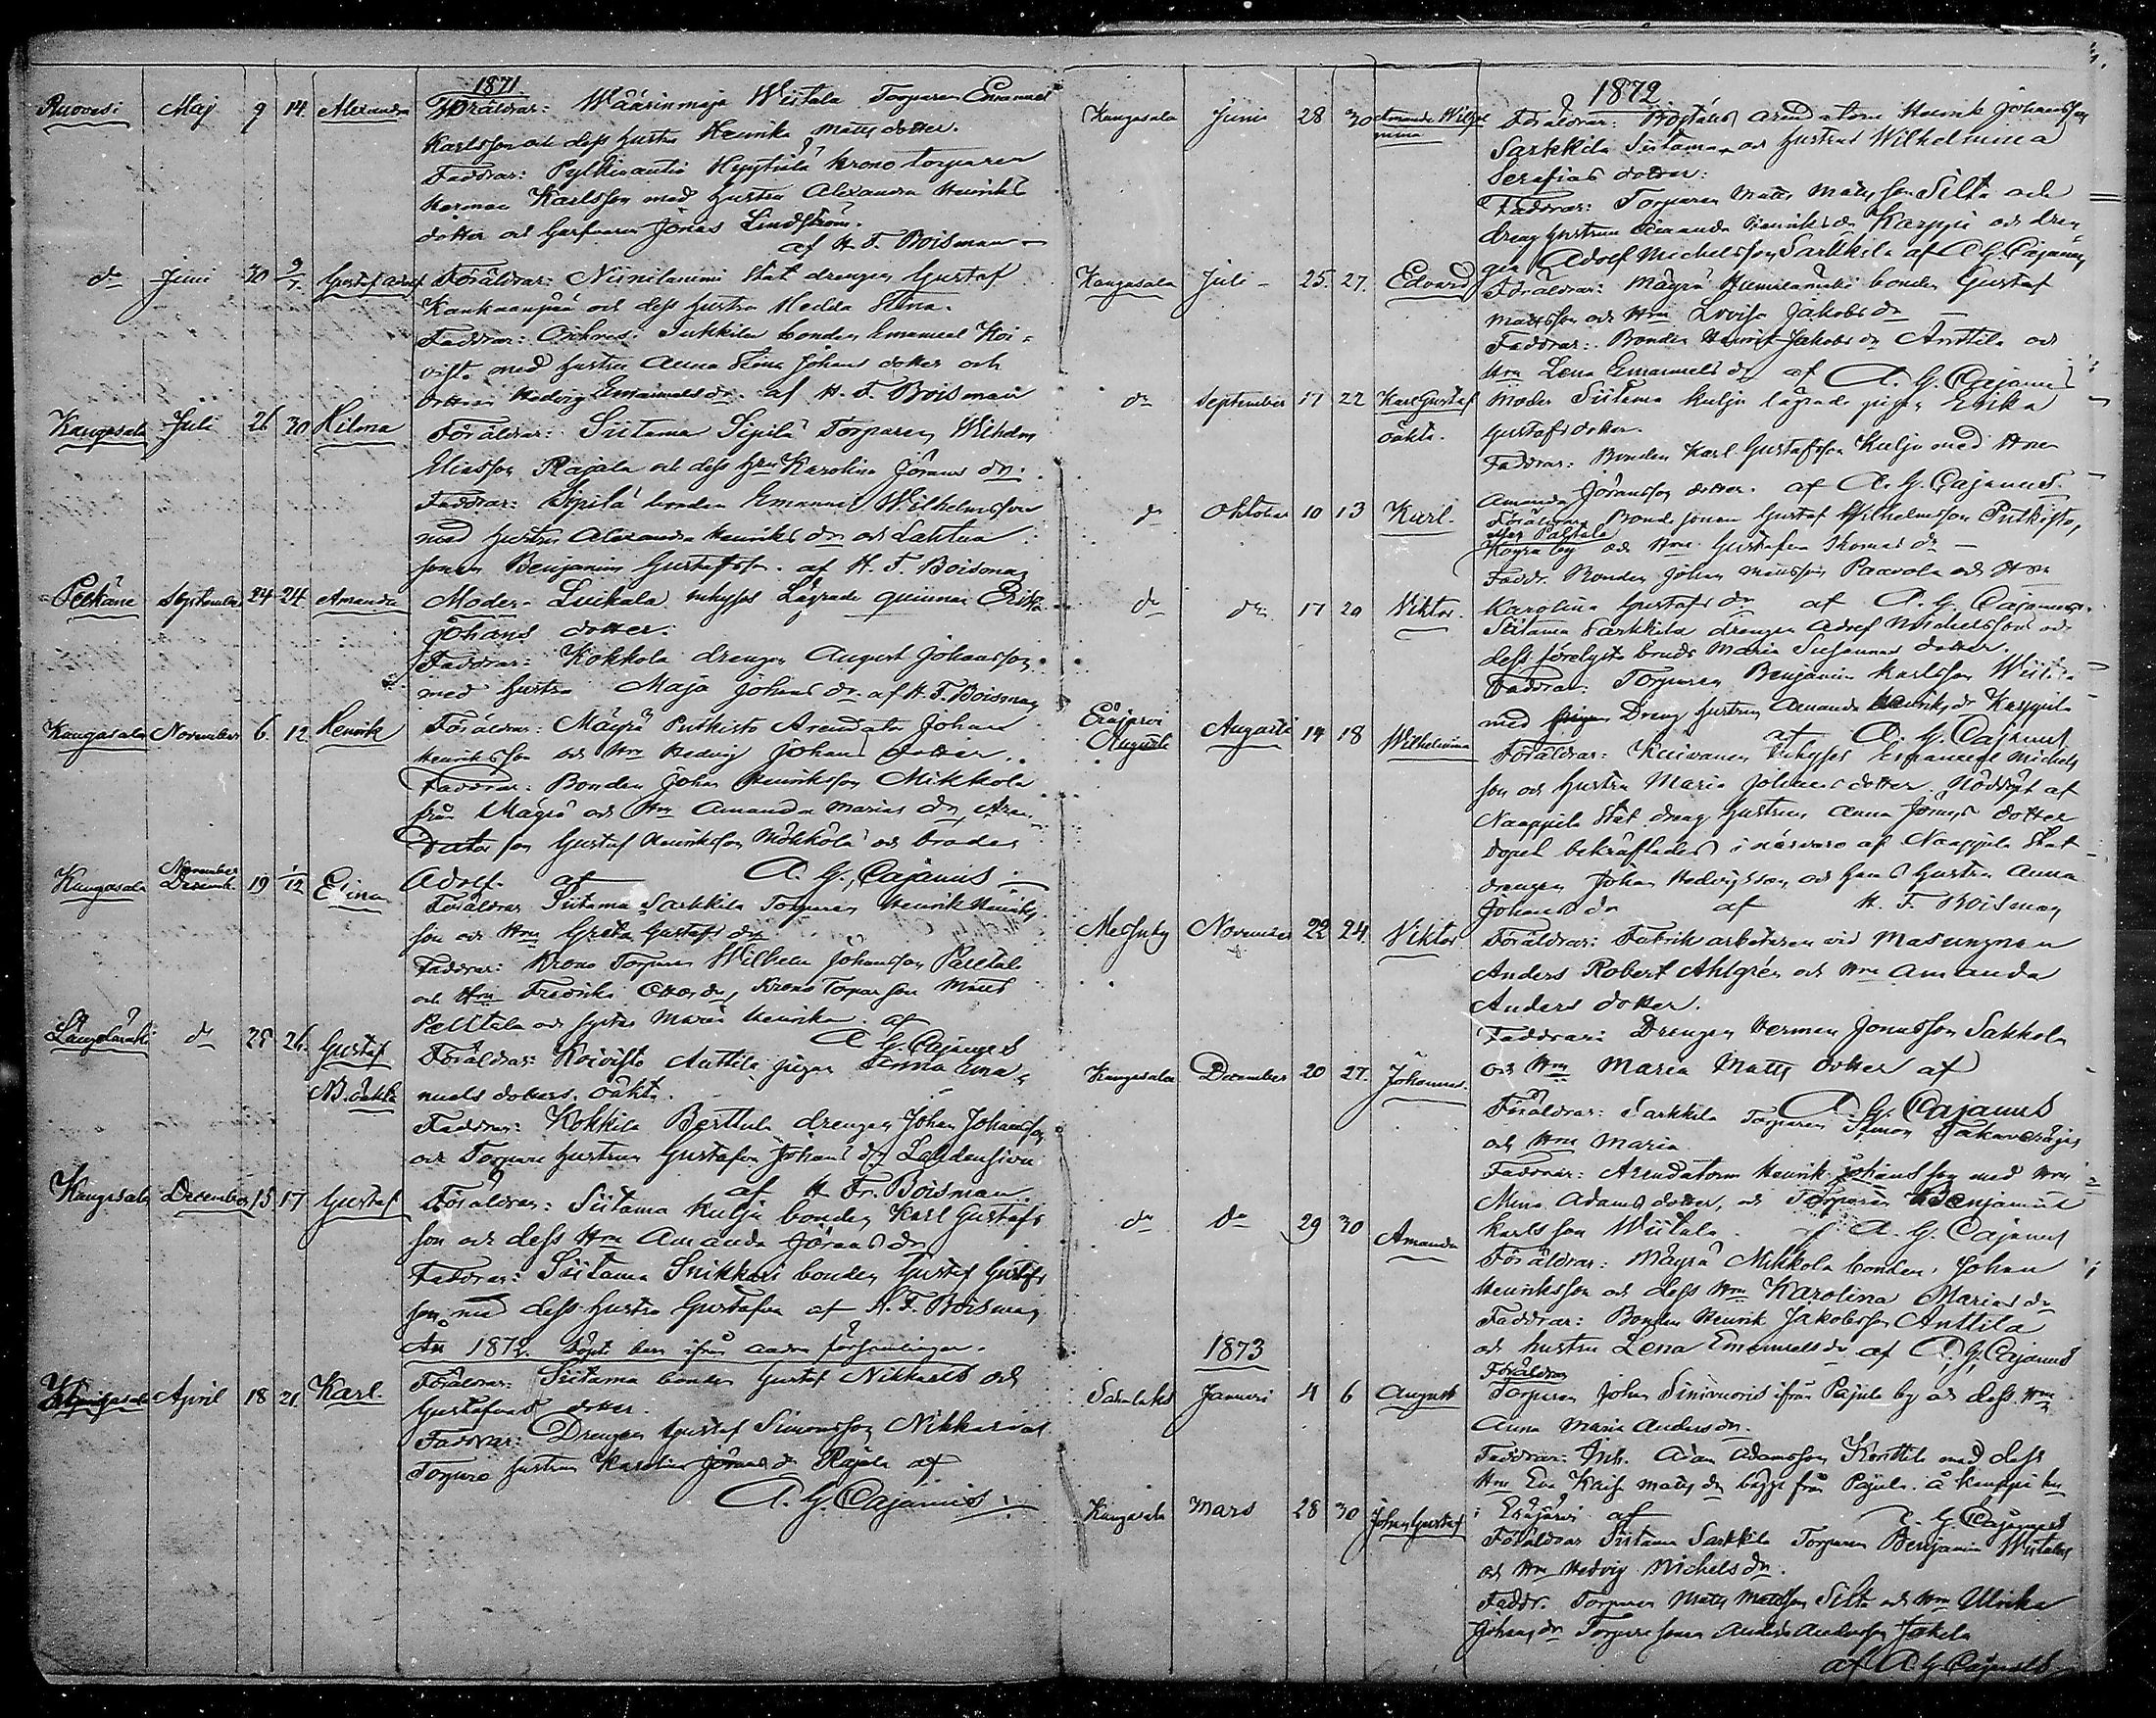 1871
Ruovesi Maj 9 14. Alexandra Föräldrar: Väärinmaja Wistala Torparen Emanuel
Karlsson och dess hustru Henrika Matts dotter.
Faddrar: Krono torparen
Herman Karlsson med hustru Alexandra Henriks
dotter och Jonas Lindström.
af H. F. Boisman
do Juni 30 9/7 Gustaf Adolf Föräldrar: Niinilammi Stat drengen Gustaf
Kankaanpää och dess hustru Hedda Stina.
Faddrar: Orihvesi bonden Emanuel Koi=
visto med hustru Anna Stina Johans dotter och
Hedvig Emanuels dr. af H. F. Boisman
Kangasala Juli 26 30 Hilma Föräldrar: Siitama Sipilä Torparen Wilhelm
Eliasson Rajala och dess Hru Karolina Jörans dr.
Faddrar: Sipilä bonden Emanuel Wilhelmsson
med hustru Alexandra Henriks dr och
sonen Benjamin Gustafsson. af H. F. Boisman
Pelkäne September 24 24 Amanda Moder: Luikala inhyses Lägrade quinnan
Johans dotter.
Faddrar: Kokkola drengen August Johansson
med hustru Maja Johans dr. af H. F. Boisman
Kangasala November 6. 12. Henrik Föräldrar: Mäyrä Putkisto Arendator Johan
Henriksson och Hru Hedvig Johans dotter.
Faddrar: Bonden Johan Henriksson Mikkola
från Mäyrä och Hru Amanda Marias dr, Aren
dator son Gustaf Henriksson Mökkölä och broder
Adolf. af A. G. Cajanus
Kangasala November Decemb. 19 1/12 Föräldrar Siitama Sarkkila Torparen Henrik Henriks
son och Hru Greta Gustafs dr
Faddrar: Krono Torparen Wilhelm Johansson Palttala
och Hru Fredrika dr, Krono Torpar son Matts
Palttala och syster Maria Henrika. af
A. G. Cajanus
Längelmäki do 25 26. Gustaf Föräldrar: Koivisto Anttila pigan Anna Ema=
NB. oäkta nuels dotters, oäkta.
Faddrar: Kokkila Berttula drengen Johan Johansson
och Torpare hustrun Gustafva Johans dr
af H. Fr. Boisman.
Kangasala December 15 17 Gustaf Föräldrar: Siitama Kulju bonden Karl Gustafs
son och dess Hru Amanda Jörans dr
Faddrar: Siitama Snikkari bonden Gustaf Gustafs
son med dess hustru Gustafva af H. F. Boisman
År 1872. Döpte barn ifrån andra församlingar.
Kangasala April 18 21. Karl. Föräldrar: Siitama bonden Gustaf och
Gustafva dotter.
Faddrar: Drengen Gustaf Simonsson Nikkari och
Torpare hustrun Karolina Jörans dr Rajala af
A. G. Cajanus
1872
Kangasala Junii 28 30 Amanda Wilhel
mina Föräldrar: arendatorn Henrik Johansson
Sarkkila Siitama, och hustrun Wilhelmina
Serafias dotter:
Faddrar: Torparen Matts Mattsson Silta och
dreng hustrun Amanda Henriks dr Karppi och dren
gen Adolf Michelsson Sarkkila af A. G. Cajanus
Kangasala Juli 25. 27. Edvard Föräldrar: Mäyrä bonden Gustaf
Mattsson och Hru Lovisa Jakobs dr
Faddrar: Bonden Henrik Jakobs Anttila och
Hru Lena Emanuels dr af A. G. Cajanus
do September 17 22 Karl Gustaf Moder Siitama Kulju lägrade pigan Erika
oäkta. Gustafs dotter.
Faddrar: Bonden Karl Gustafsson Kulju med Hru
Amanda Jöransson dotter. af A. G. Cajanus.
do Oktober 10 13 Karl. Föräldrar: Bonde sonen Gustaf Wilhelmsson Putkisto,
by och Hru Gustafva Thomas dr
Faddr. Bonden Johan Paavola och Hru
do do 17 20 Viktor. Karolina Gustafs dr af A. G. Cajanus.
Siitama Sarkkila drengen Adolf Michelsson och
dess förelyste brud Maria Susannas dotter.
Faddrar: Torparen Benjamin Karlsson Wiitala
med Dreng hustrun Amanda Henriks dr Karppila
af A. G. Cajanus
Eräjärvi
Augusti Augusti 14 18 Wilhelmina Föräldrar: Inhyses Emanuel Michels
son och hustru Maria Johans dotter. Nöddöpt af
Naappila Stat dreng hustrun Anna Jörans dotter
dopet bekräftades i närvaro af Naappila Stat=
drengen Johan Hedvigsson och hans hustru Anna
Johans dr af H. F. Boisman
Messuby November 22 24. Viktor Föräldrar: Fabrik arbetaren vid Masungnen
Anders Robert Ahlgrén och Hru Amanda
Anders dotter.
Faddrar: Drengen Herman Jonasson Sakkola
och Hru Maria Matts dotter af
A. G. Cajanus
Kangasala December 20 27. Johannes. Föräldrar: Sarkkila Torparen Simon
och Hru Maria
Faddrar: Arendatorn Henrik Johansson med Hru
Mina Adams dotter, och Torparen Benjamin
Karlsson Wiitala. af A. G. Cajanus
do do 29 30 Amanda Föräldrar: Mäyrä Mikkola bonden Johan
Henriksson och dess Hru Karolina Marias dr
Faddrar: Bonden Henrik Jakobsson Anttila
och hustru Lena Emanuels dr af A. G. Cajanus
1873
Sahalahti Januari 4 6 August Föräldrar
Torparen Johan Sinivuoris ifrån Pajula by och dess Hru
Anna Maria Anders dr.
Faddrar: Inh. Adam Adamsson Konttila med dess
Hru Eva Kaisa Matts dr bägge från Pajula.
i Eräjärvi af A. G. Cajanus
Kangasala Mars 28 30 Johan Gustaf Föräldrar Siitama Sarkkila Torparen Benjamin Wiitala
och Hru Hedvig Michels dr.
Faddr. Torparen Matts Mattsson Silta och Hru Ulrika
Johans dr Torpare sonen Anders Andersson Jakela
af A. G. Cajanus